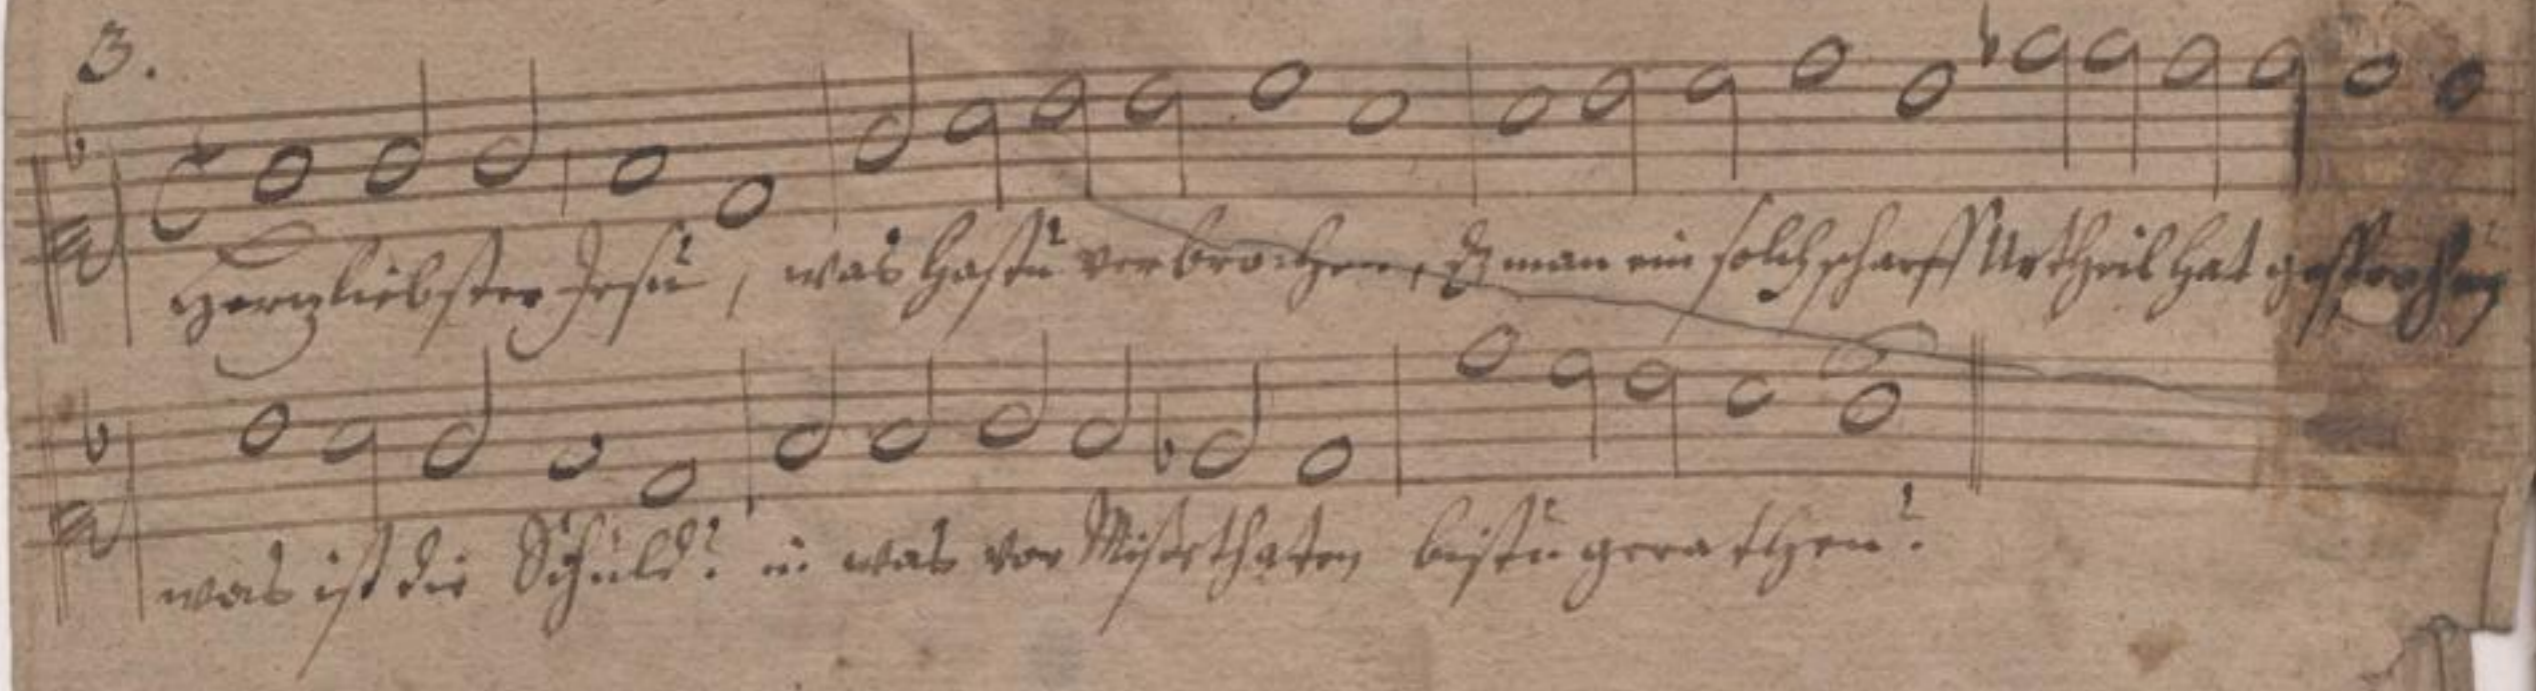 3.
Hertzliebster Jesu, was hastu verbrochen, dz man ein solch scharff Urtheil hat gesprochen
was ist die Schuld? in was vor Missethaten bistu gerathen?